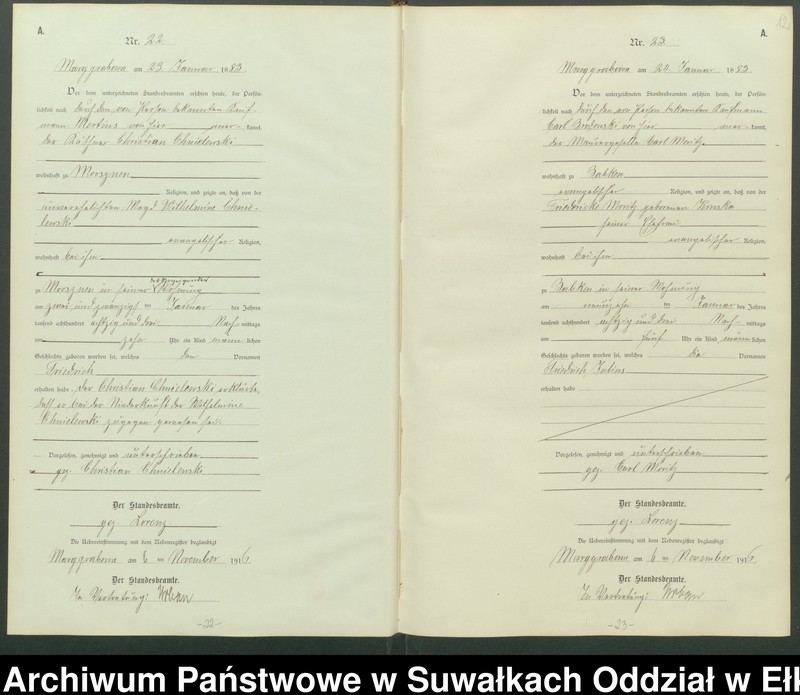 A.
Nr. 22
Marggrabowa am 23 Januar 1883
Vor dem unterzeichneten Standesbeamten erschien heute, der Persön-
lichkeit nach durch den von Person bekannten Kauf-
mann Mertins von hier aner- kannt,
der Käthner Christian Chmielewski
wohnhaft zu Morsznen
Religion, und zeigte an, daß von der
unverehelichten Magd Wilhelmine Chmie-
lewski
evangelischer Religion,
wohnhaft bei ihm
zu Morsznen in seiner Wohnung
am zwei und zwanzigst en Januar des Jahres
tausend achthundert achtzig und drei Nach- mittags
um zehn Uhr ein Kind männ lichen
Geschlechts geboren worden sei, welches den Vornamen
Friedrich
erhalten habe. Der Christian Chmielewski erklärte,
daß er bei der Niederkunft der Wilhelmine
Chmielewski zugegen gewesen sei.
Vorgelesen, genehmigt und unterschrieben
gez. Christian Chmielewski
Der Standesbeamte.
gez. Lorenz
Die Uebereinstimmung mit dem Nebenregister beglaubigt
Marggrabowa am 6 ten November 1916
Der Standesbeamte.
In Vertretung: Urban
-22-
A.
Nr. 23
Marggrabowa am 24 Januar 1883
Vor dem unterzeichneten Standesbeamten erschien heute, der Persön-
lichkeit nach durch den von Person bekannten Kaufmann
Carl von hier aner- kannt,
der Maurergeselle Carl Moritz
wohnhaft zu Babken
evangelischer Religion, und zeigte an, daß von der
Friedricke Moritz geborenen
seiner Ehefrau
evangelischer Religion,
wohnhaft bei ihm
zu Babken in seiner Wohnung
am neunzehn ten Januar des Jahres
tausend achthundert achtzig und drei Nach- mittags
um fünf Uhr ein Kind männ lichen
Geschlechts geboren worden sei, welches die Vornamen
Friedrich Julius
erhalten habe
Vorgelesen, genehmigt und unterschrieben
gez. Carl Moritz
Der Standesbeamte.
gez. Lorenz
Die Uebereinstimmung mit dem Nebenregister beglaubigt
Marggrabowa am 6 ten November 1916
Der Standesbeamte.
In Vertretung: Urban
-23-
Archiwum Państwowe w Suwałkach Oddział w Ełk